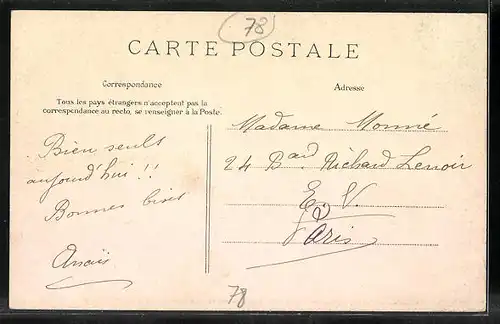 78
CARTE POSTALE
Correspondance
Adresse
Tous les pays étrangers n'acceptent pas la
correspondance au recto, se renseigner à la Poste.
Bien seuls
aujourd'hui !!
Bonnes bises
Anaïs
Madame Monné
24 Bard Richard Lenoir
E. V.
Paris
78